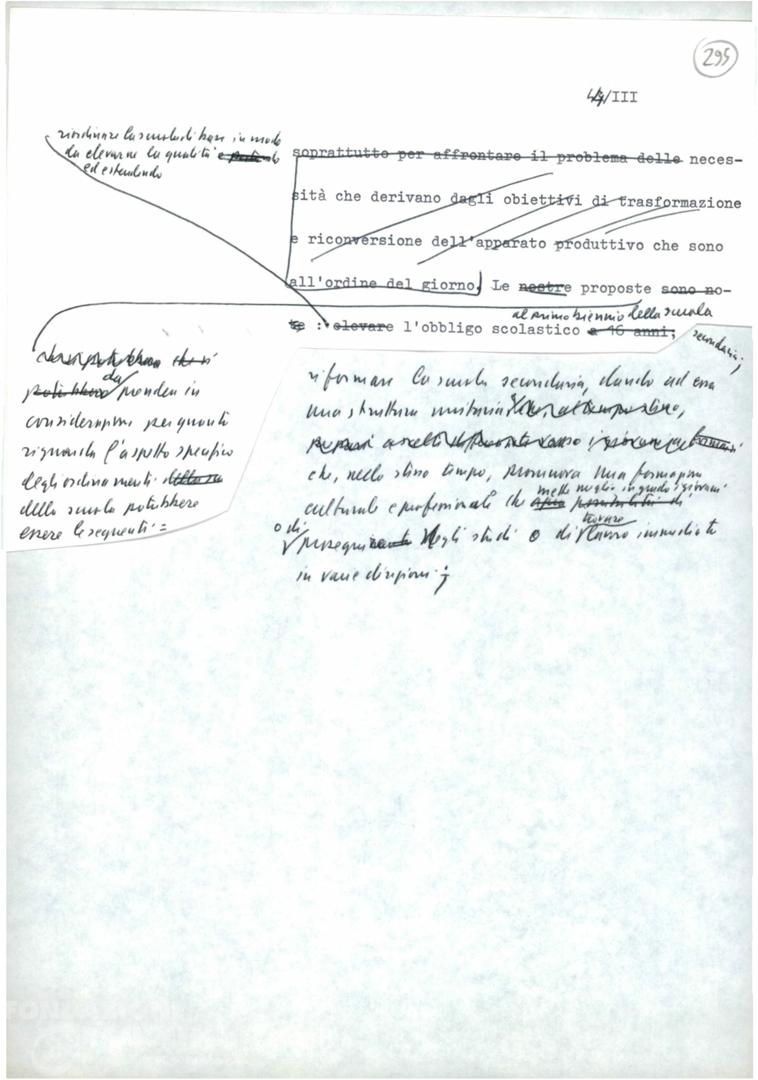 295
44/III
riordinare la scuola di base in modo
da elevarne la qualità e
ed estendendo
soprattutto per affrontare il problema delle neces-
sità che derivano dagli obiettivi di trasformazione
e riconversione dell'apparato produttivo che sono
all'ordine del giorno. Le nostre proposte sono no-
al primo biennio della scuola
te : elevare l'obbligo scolastico a 16 anni;
secondaria;
potrebbero da prendere in
considerazione per quanto
riguarda l'aspetto specifico
degli ordinamenti della
della scuola potrebbero
essere le seguenti :
riformare la scuola secondaria, dando ad essa
una struttura unitaria
che, nello stesso tempo, promuova una formazione
culturale e professionale che possibilità di
metta meglio in grado i giovani
o di proseguire negli studi o di trovare lavoro immediato
in varie direzioni;
FONDAZIONE